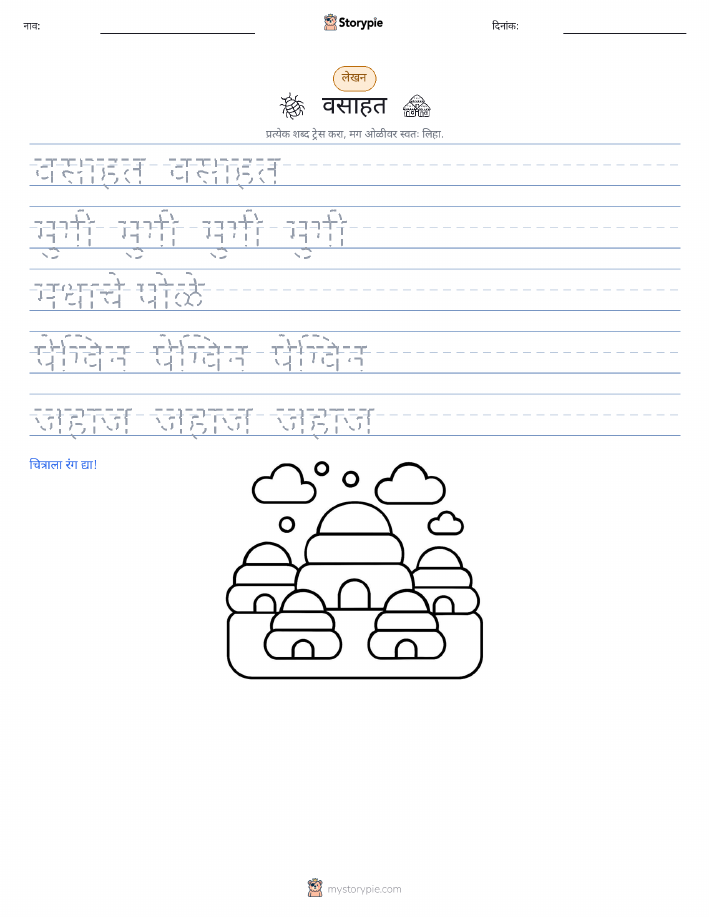 नाव: Storypie दिनांक:
लेखन
वसाहत
प्रत्येक शब्द ट्रेस करा, मग ओळीवर स्वतः लिहा.
वसाहत वसाहत
मुंगी मुंगी मुंगी मुंगी
मधाचे पोळे
पेंग्विन पेंग्विन पेंग्विन
जहाज जहाज जहाज
चित्राला रंग द्या!
mystorypie.com